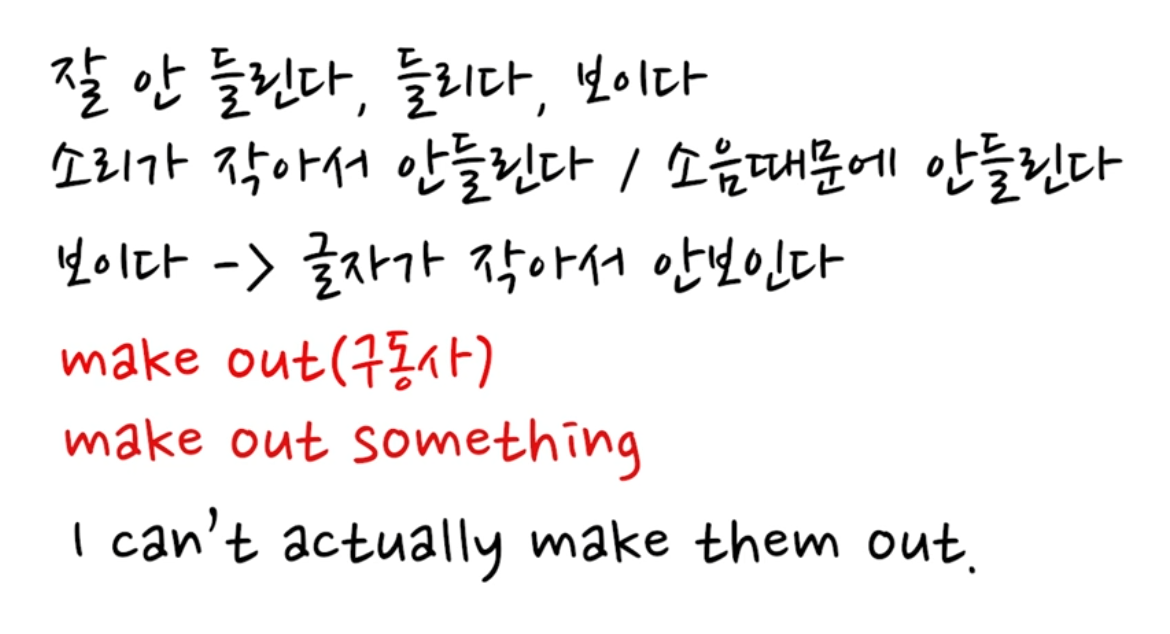 잘 안 들린다, 들리다, 보이다
소리가 작아서 안들린다 / 소음때문에 안들린다
보이다 -> 글자가 작아서 안보인다
make out(구동사)
make out something
I can't actually make them out.